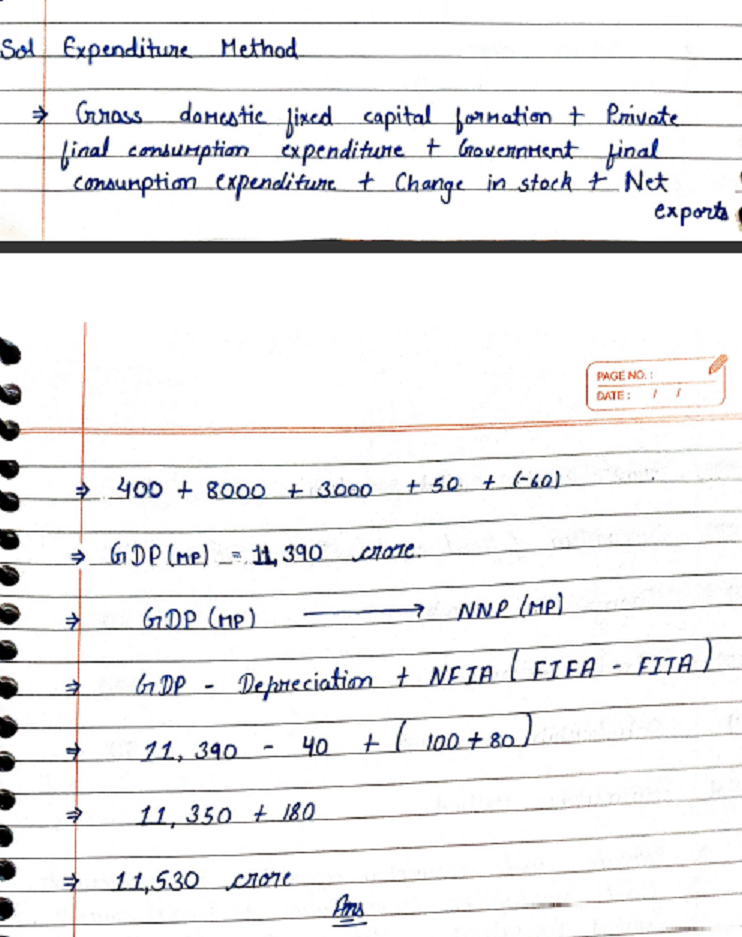 Sol Expenditure Method
⇒ Gross domestic fixed capital formation + Private
final consumption expenditure + Government final
consumption expenditure + Change in stock + Net
exports
PAGE NO. :
DATE : / /
⇒ 400 + 8000 + 3000 + 50 + (-60)
⇒ GDP (MP) = 11,390 crore.
⇒ GDP (MP) ⟶ NNP (MP)
⇒ GDP - Depreciation + NFIA ( FIFA - FITA )
⇒ 11,390 - 40 + ( 100 + 80 )
⇒ 11,350 + 180
⇒ 11,530 crore
Ans